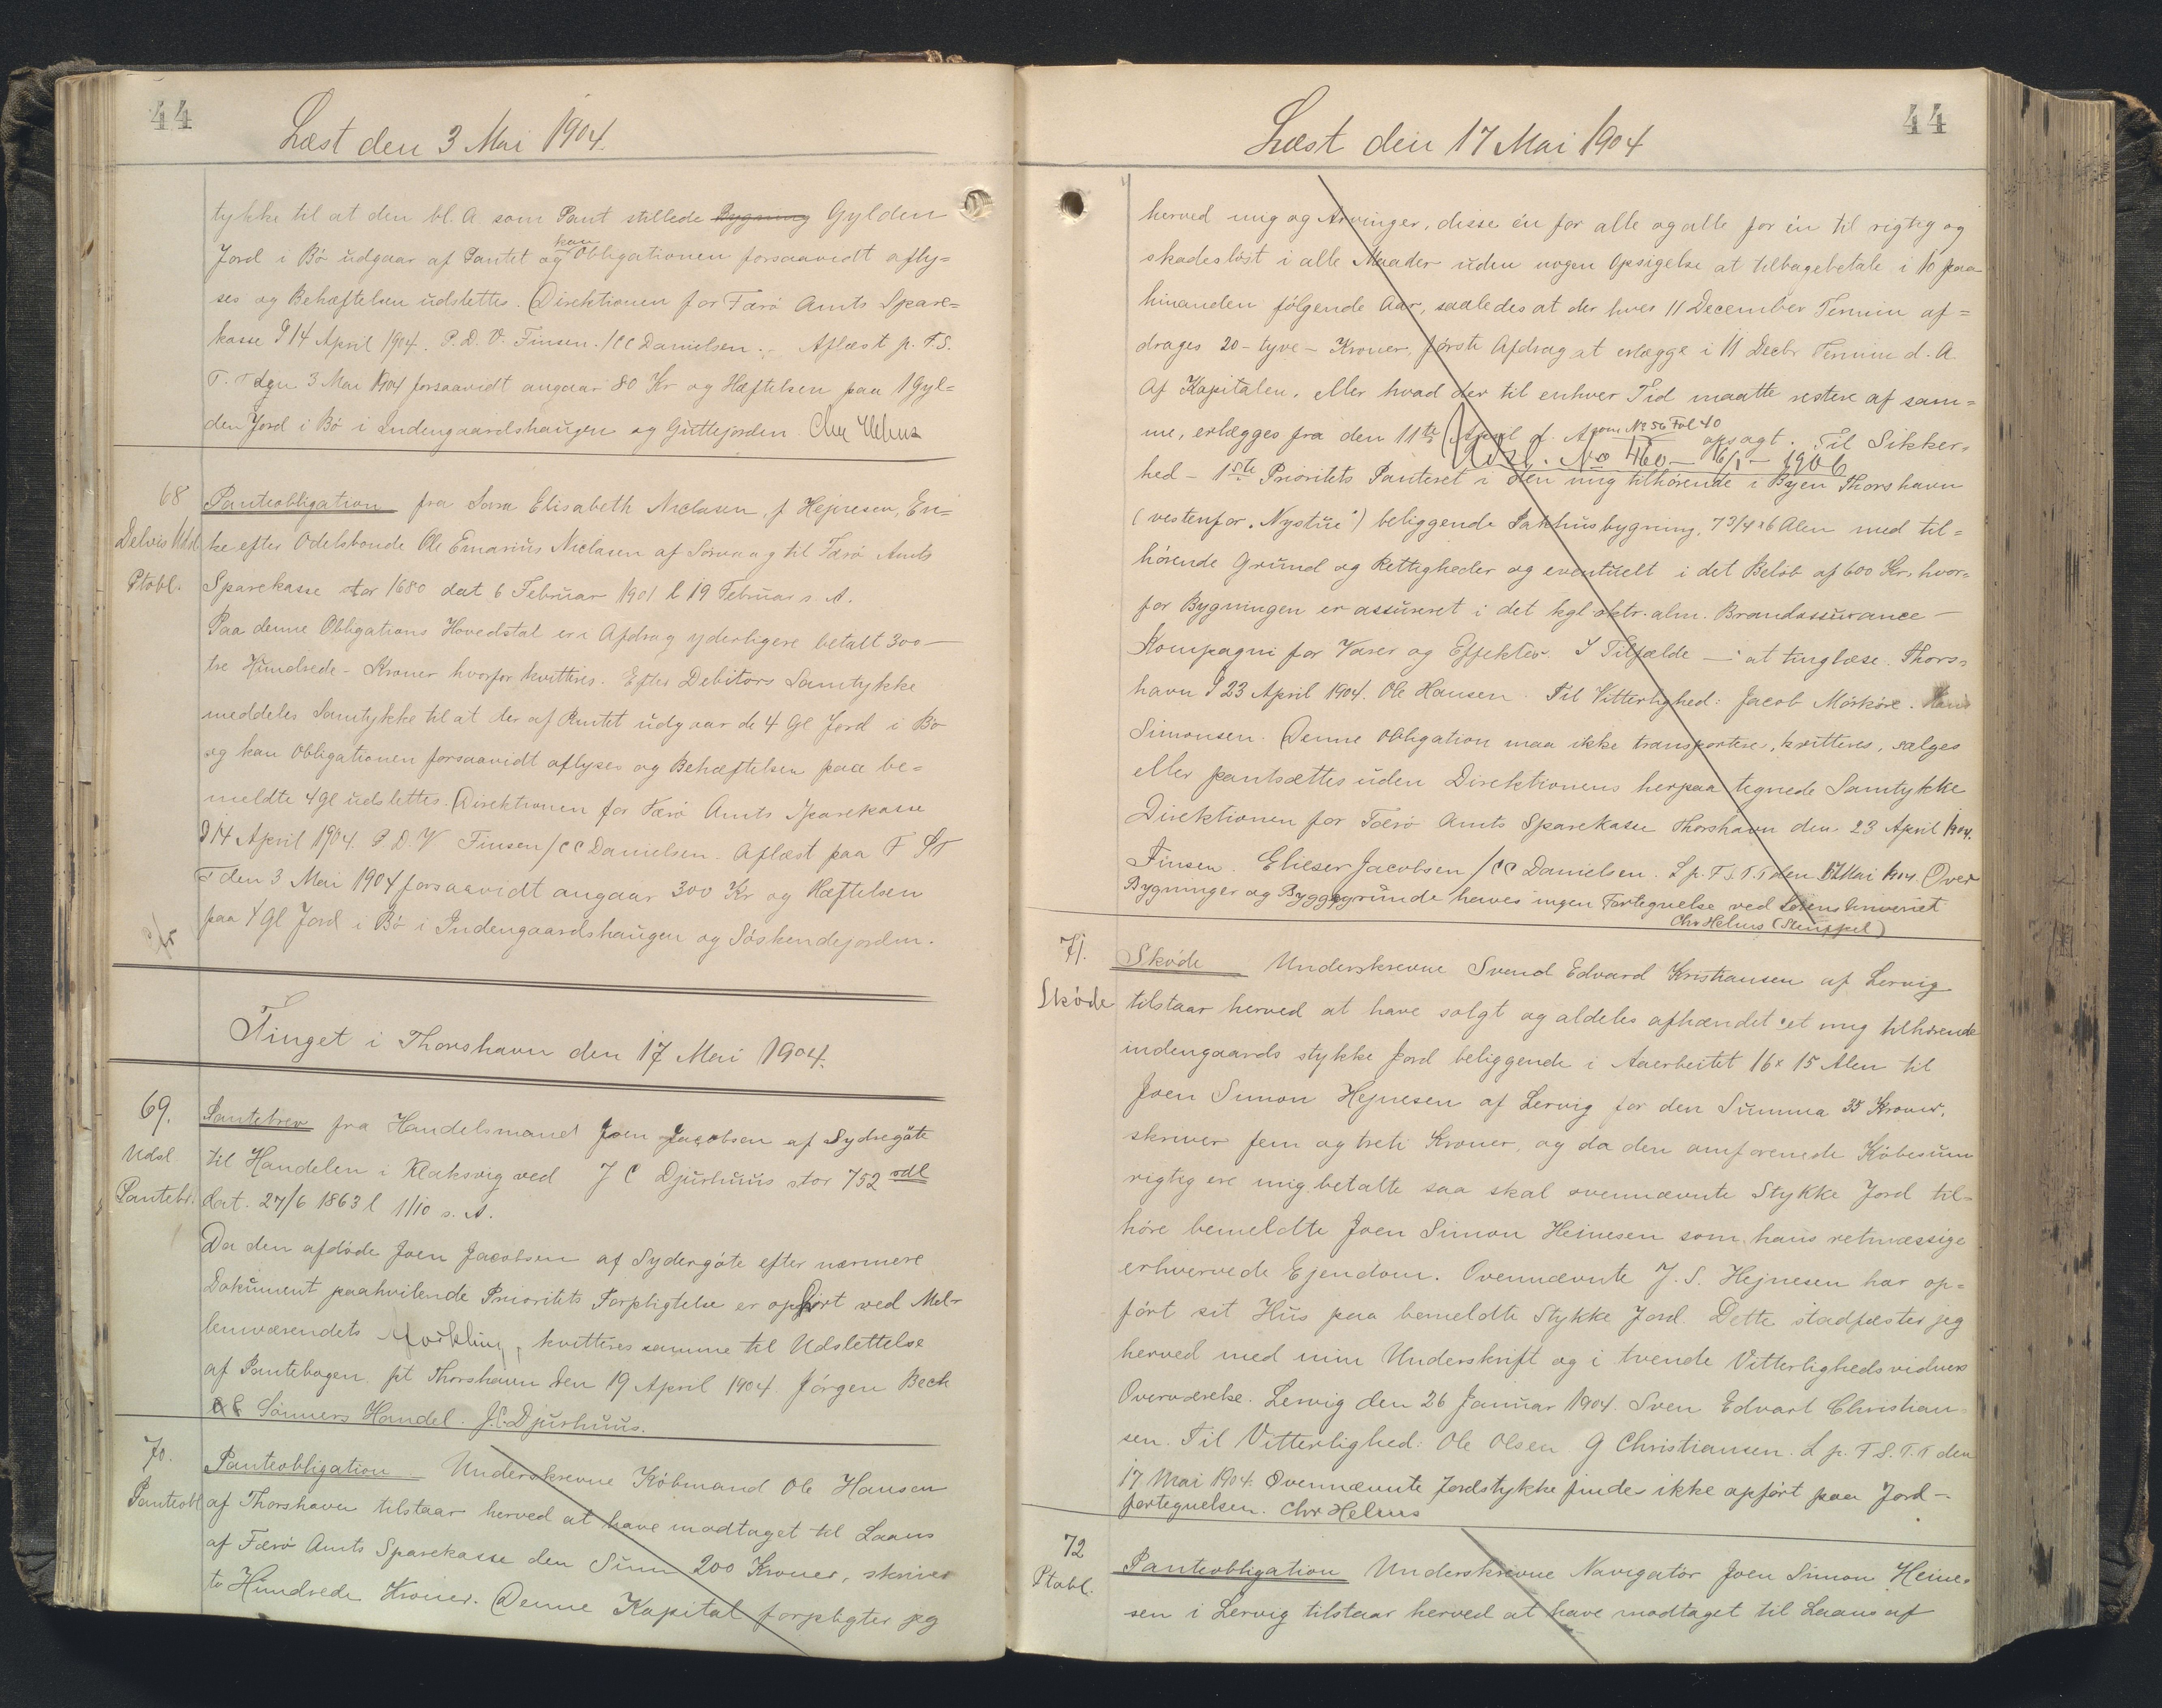 44
Læst den 3 Mai 1904.
tykke til at den bl. A som Pant stillede Bygning Gylden
Jord i Bø udgaar af Pantet og kan Obligationen forsaavidt afly=
ses og Behæftelsen udslettes. Direktionen for Færø Amts Spare=
kasse d 14 April 1904. P. D. V. Finsen. / CC Danielsen. - Aflæst p. F.S.
T. T den 3 Mai 1904 forsaavidt angaar 80 Kr og Hæftelsen paa 1 Gyl=
den Jord i Bø i Indengaardshaugen og Guttejorden.
68
Delvis Uds
Ptobl.
Panteobligation fra Sara Elisabeth Niclasen, f Hejnesen, En=
ke efter Odelsbonde Ole Emarius Niclasen af Sørvaag til Færø Amts
Sparekasse stor 1680 dat 6 Februar 1901 l 19 Februar s. A.
Paa denne Obligations Hovedstol er i Afdrag yderligere betalt 300 -
tre Hundrede - Kroner hvorfor kvitteres. Efter Debitors Samtykke
meddeles Samtykke til at der af Pantet udgaar de 4 Gl Jord i Bø
og kan Obligationen forsaavidt aflyses og Behæftelsen paa be=
meldte 4 Gl udslettes. Direktionen for Færø Amts Sparekasse
d 14 April 1904. P. D. V Finsen / CC Danielsen. Aflæst paa F ST
T den 3 Mai 1904 forsaavidt angaar 300 Kr og Hæftelsen
paa 4 Gl Jord i Bø i Indengaardshaugen og Søskendejorden.
Tinget i Thorshavn den 17 Mai 1904.
69.
Udsl
Pantebr.
Pantebrev fra Handelsmand Joen Jacobsen af Sydregøte
til Handelen i Klaksvig ved J C Djurhuus stor 752 rdl
dat. 27/6 1863 l 1/10 s. A.
Da den afdøde Joen Jacobsen af Sydergøte efter nærmere
Dokument paahvilende Prioritets Forpligtelse er ophørt ved Mel-
lemværendets kvitteres samme til Udslettelse
af Pantebogen. pt Thorshavn den 19 April 1904. Jørgen Bech
& Sønners Handel. J.C. Djurhuus.
70.
Panteobl
Panteobligation Underskrevne Købmand Ole Hansen
af Thorshavn tilstaar herved at have modtaget til Laans
af Færø Amts Sparekasse den Sum 200 Kroner, skriver
to Hundrede Kroner. Denne Kapital forpligter jeg
44
Læst den 17 Mai 1904
herved mig og Arvinger, disse én for alle og alle for én til rigtig og
skadesløst i alle Maader uden nogen Opsigelse at tilbagebetale i 10 paa
hinanden følgende Aar, saaledes at der hver 11 December Termin af=
drages 20 - tyve - Kroner, første Afdrag at erlægge i 11 Decbr Termin d. A
Af Kapitalen, eller hvad der til enhver Tid maatte restere af sam=
me, erlægges fra den 11te April d. A som No 56 Fol 40 opsagt. Til Sikker=
Udsl. No 460 - 16/1 - 1906
hed - 1ste Prioritets Panteret i den mig tilhørende i Byen Thorshavn
(vestenfor "Nystue") beliggende Pakhusbygning, 7 3/4 x 6 Alen med til=
hørende Grund og Rettigheder og eventuelt i det Beløb af 600 Kr, hvor=
for Bygningen er assureret i det kgl oktr. alm. Brandassurance -
Kompagni for Varer og Effekter. I Tilfælde - at tinglæse. Thors=
havn d 23 April 1904. Ole Hansen. Til Vitterlighed: Jacob Mørkøre. Hans
Simonsen. Denne Obligation maa ikke transportere, kvitteres, sælges
eller pantsættes uden Direktionens herpaa tegnede Samtykke
Direktionen for Færø Amts Sparekasse Thorshavn den 23 April 1904.
Finsen. Elieser Jacobsen / CC Danielsen. L p. F.S.T.T den 17 Mai 1904. Over
Bygninger og Byggegrunde haves ingen Fortegnelse ved Sorenskriveriet
Chr Helms (Stempel)
71.
Skøde
Skøde Underskrevne Svend Edvard Kristiansen af Lervig
tilstaar herved at have solgt og aldeles afhændet et mig tilhørende
indengaards stykke Jord beliggende i Aaerbeitet 16 x 15 Alen til
Joen Simon Hejnesen af Lervig for den Summa 35 Kroner,
skriver fem og treti Kroner, og da den omforenede Købesum
rigtig ere mig betalte saa skal ovennævnte Stykke Jord til=
høre bemeldte Joen Simon Heinesen som hans retmæssige
erhvervede Ejendom. Ovennævnte J. S. Hejnesen har op=
ført sit Hus paa bemeldte Stykke Jord. Dette stadfæster jeg
herved med min Underskrift og i tvende Vitterlighedsvidners
Overværelse. Lervig den 26 Januar 1904. Sven Edvart Christian
sen. Til Vitterlighed: Ole Olsen G Christiansen. L p. F S. T. T den
17 Mai 1904. Ovennævnte Jordstykke findes ikke opført paa Jord-
fortegnelsen. Chr Helms
72
Ptobl.
Panteobligation Underskrevne Navigatør Joen Simon Heine=
sen i Lervig tilstaar herved at have modtaget til Laans af